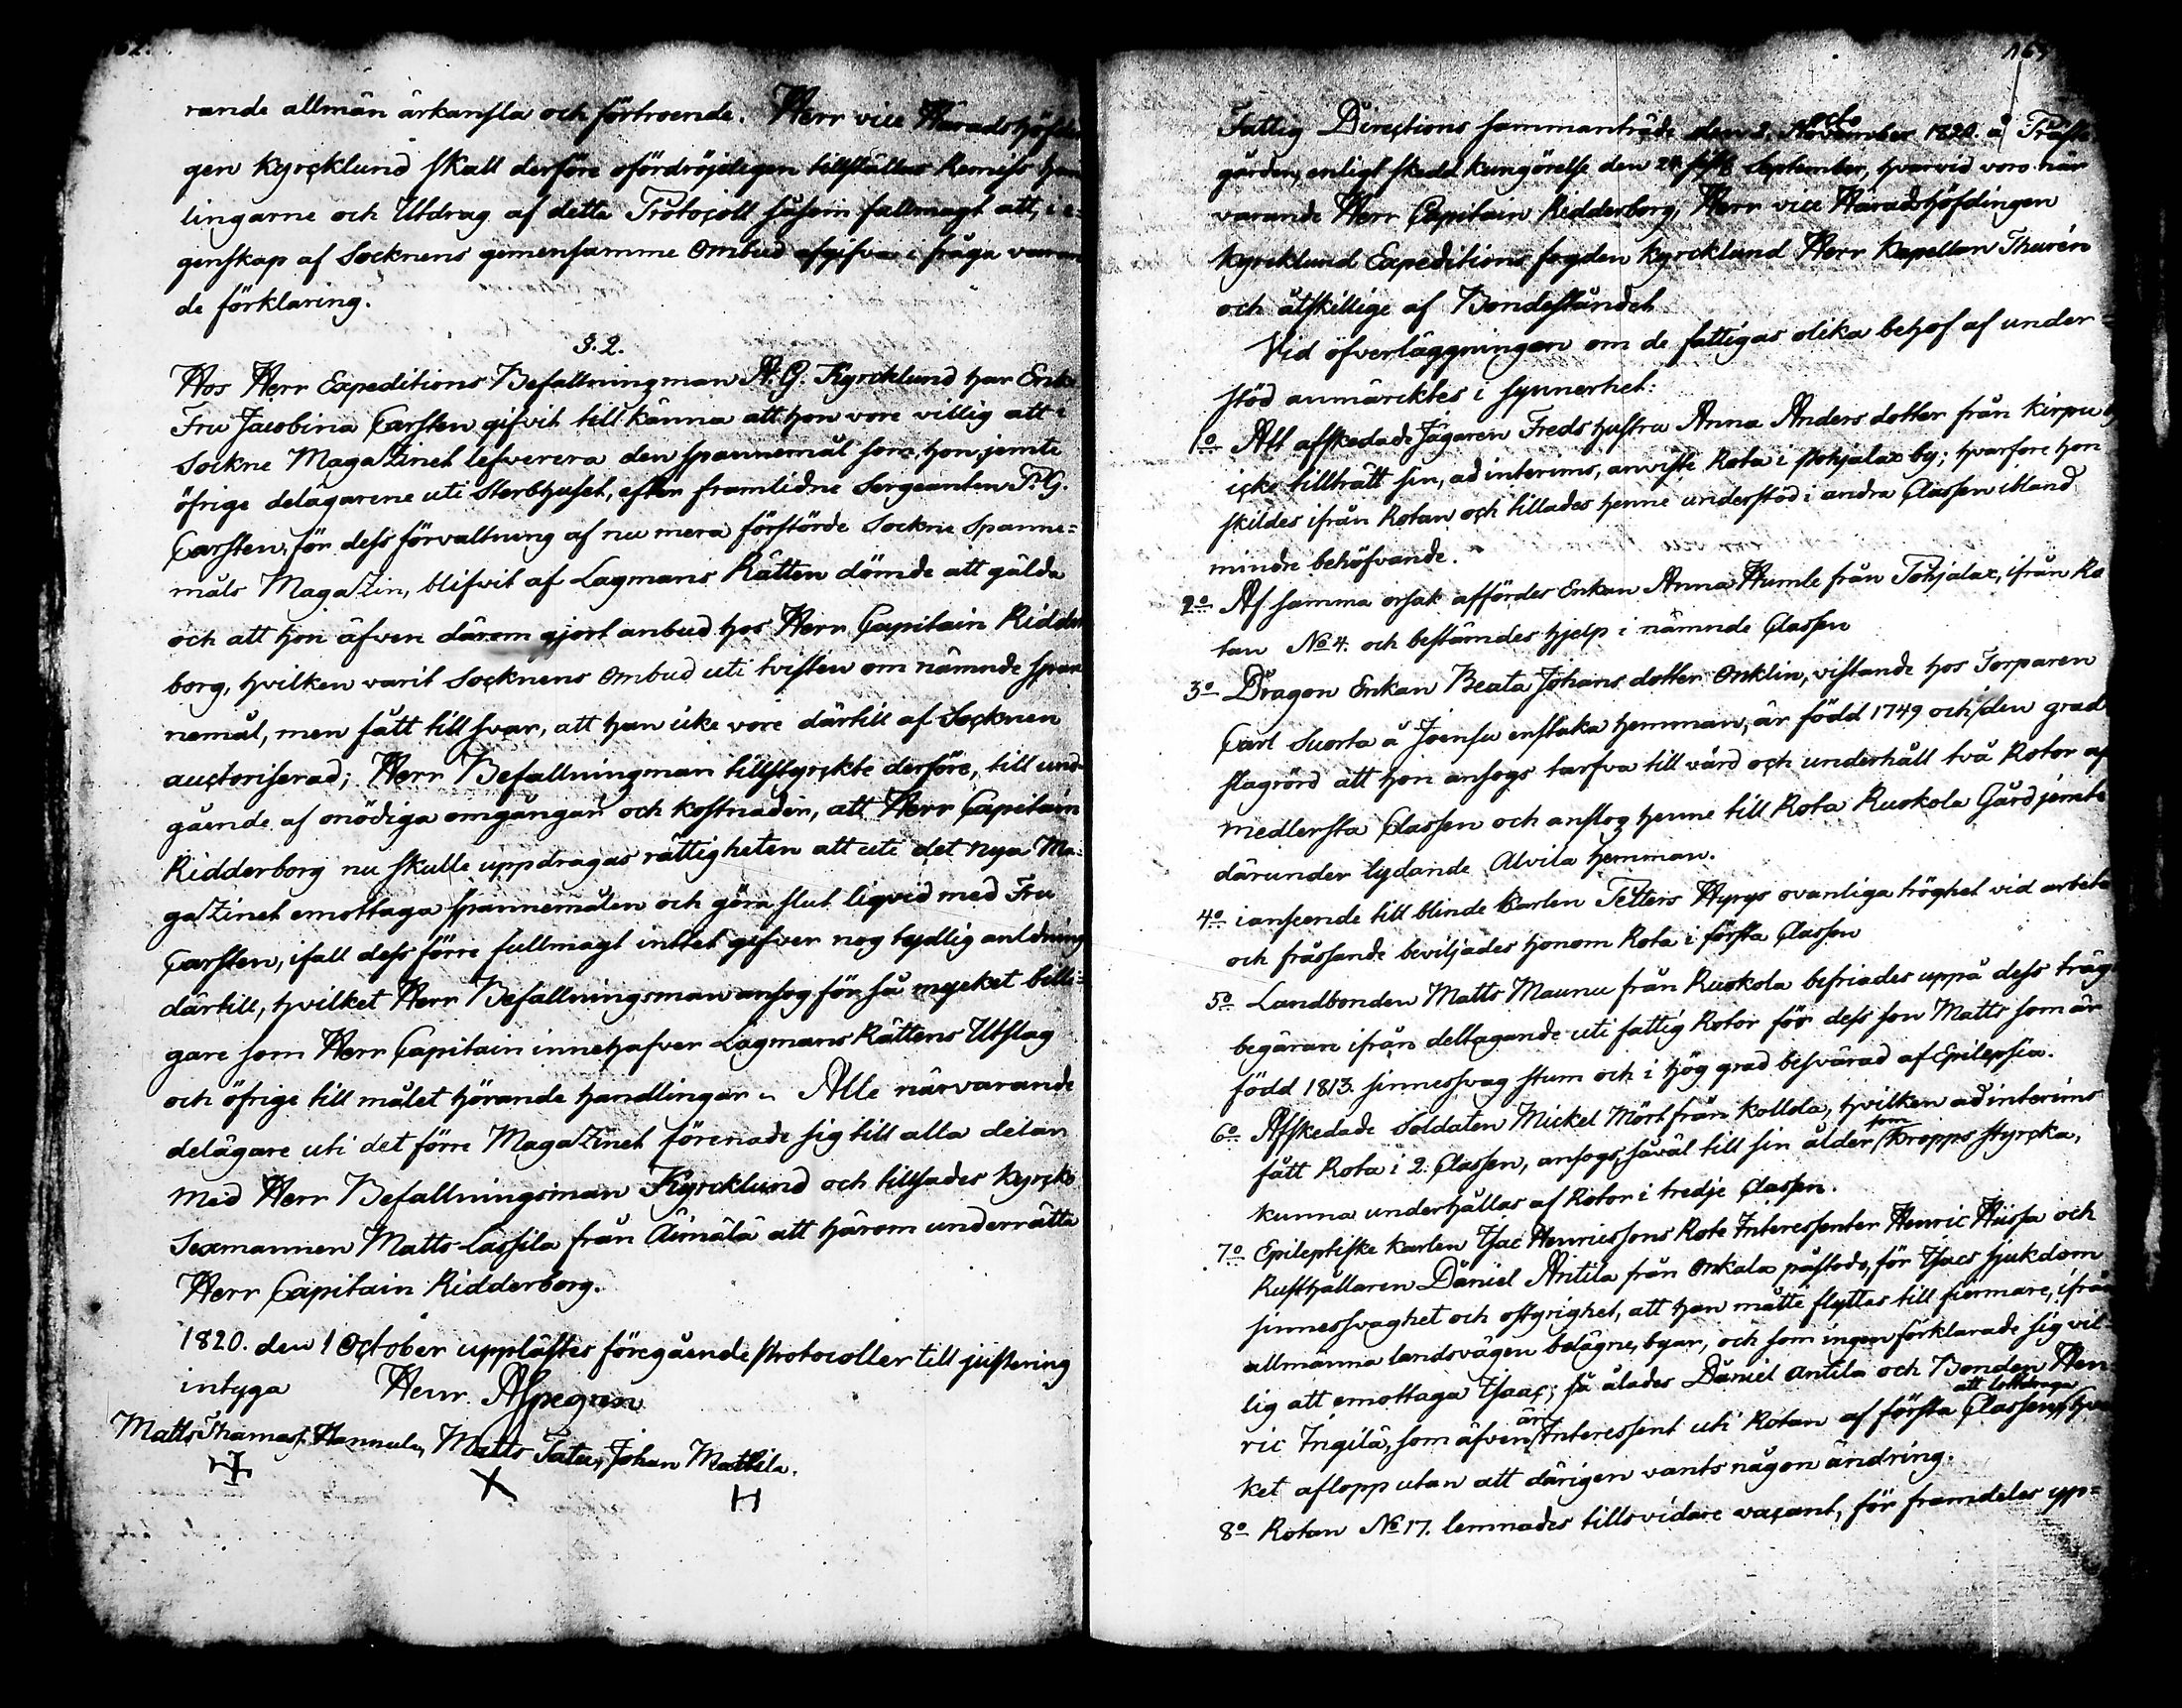 62.
rande allmän ärkänsla och förtroende. Herr vice Häradshöfdin
gen Kyrcklund skall derföre ofördröjeligen tillställas Remiss han
lingarne och Utdrag af detta Protocoll såsom fullmagt att, i e=
genskap af Socknens gemensamme Ombud afgifva i fråga varan
de förklaring.
§. 2.
Hos Herr Expeditions Befallningman A. G. Kyrcklund har Enke
Fru Jacobina Carsten gifvit tillkänna att hon vore villig att i
Sockne Magazinet lefverera den spannemål som hon jemte
öfrige delägarene uti Sterbhuset, efter framlidne Sergeanten P. G.
Carsten, för dess förvaltning af nu mera förstörde Sockne Spanne=
måls Magazin, blifvit af Lagmans Rätten dömde att gälda
och att hon äfven därom gjort anbud hos Herr Capitain Ridder
borg, hvilken varit Socknens Ombud uti tvisten om nämnde span
nemål, men fått till svar, att han icke vore därtill af Socknen
auctoriserad; Herr Befallningman tillstyrckte derföre, till und=
gående af onödiga omgångar och kostnader, att Herr Capitain
Ridderborg nu skulle uppdragas rättigheten att uti det nya Ma=
gazinet emottaga spannemålen och göra slut liqvid med Fru
Carsten, ifall dess förre fullmagt intet gifver nog tydlig anledning
därtill, hvilket Herr Befallningsman ansog för så mycket billi=
gare som Herr Capitain innehafver Lagmans Rättens Utslag
och öfrige till målet hörande handlingar. Alle närvarande
delägare uti det förre Magazinet förenade sig till alla delar
med Herr Befallningsman Kyrcklund och tillsades Kyrcko
Sexmannen Matts Lassila från Äimälä att härom underrätta
Herr Capitain Ridderborg.
1820. den 1 October upplästes föregående Protocoller till justering
intyga Henr. Alpegren
Matts Thomas: Hannula, Matts Satu, Johan Mattila.
H X H
Fattig Directions sammanträde den 2. November octo 1820. å Präste
gården, enligt skedd kungörelse den 24 sistl. September, hvarvid voro när
varande Herr Capitain Ridderborg, Herr vice Häradshöfdingen
Kyrcklund Expeditions fogden Kyrcklund Herr Kapellan Thurén
och åtskillige af Bondeståndet
Vid öfverläggningen om de fattigas olika behof af under=
stöd anmärcktes i synnerhet:
1o Att afskedade Jägaren Freds hustru Anna Anders dotter från Kirpu
icke tillträtt sin, ad interims, anviste Rota i Pohjalax by; hvarföre hon
skildes ifrån Rotan och tillades henne understöd i andra Classen ibland
mindre behöfvande.
2o Af samma orsak affördes Enkan Anna Humle från Pohjalax, ifrån Ro
tan No 4. och bestämdes hjelp i nämnde Classen
3o Dragon Enkan Beata Johans dotter Onklin, vistande hos Torparen
Carl Suorta å Joensu enstaka hemman, är född 1749 och i den grad
slagrörd att hon ansogs tarfva till vård och underhåll två Rotor af
medlersta Classen och anslog henne till Rota Ruokola Gård jemte
därunder lydande Alvila hemman.
4o i anseende till blinde Karlen Petters Hyrys ovanliga tröghet vid arbete
och fråssande beviljades honom Rota i första Classen
5o Landbonden Matts Maunu från Ruokola befriades uppå dess träg
begäran ifrån deltagande uti fattig Rotor för dess son Matts som är
född 1813. sinnessvag stum och i hög grad besvärad af Epilepsia.
6o Afskedade Soldaten Mickel Mört från Kollola, hvilken ad interims
fått Rota i 2. Classen, ansogs, såväl till sin ålder som kropps styrcka,
kunna underhållas af Rotor i tredje Classen.
7o Epileptiske karlen Isac Henricssons Rote Interessenter Henric Hiissa och
Rusthållaren Daniel Antila från Onkala påstodo, för Isacs sjukdom
sinnessvaghet och ostyrighet, att han måtte flyttas till fiermare, ifrån
allmänna landsvägen belägne, byar, och som ingen förklarade sig vil=
lig att emottaga Isaac; så ålades Daniel Antila och Bonden Hen
ric Ingilä, som äfven är Interessent uti Rotan af första Classen, att lottdraga hvil
ket aflopp utan att därigen vants någon ändring.
8o Rotan No 17. lemnades tillsvidare vacant, för framdeles upp=